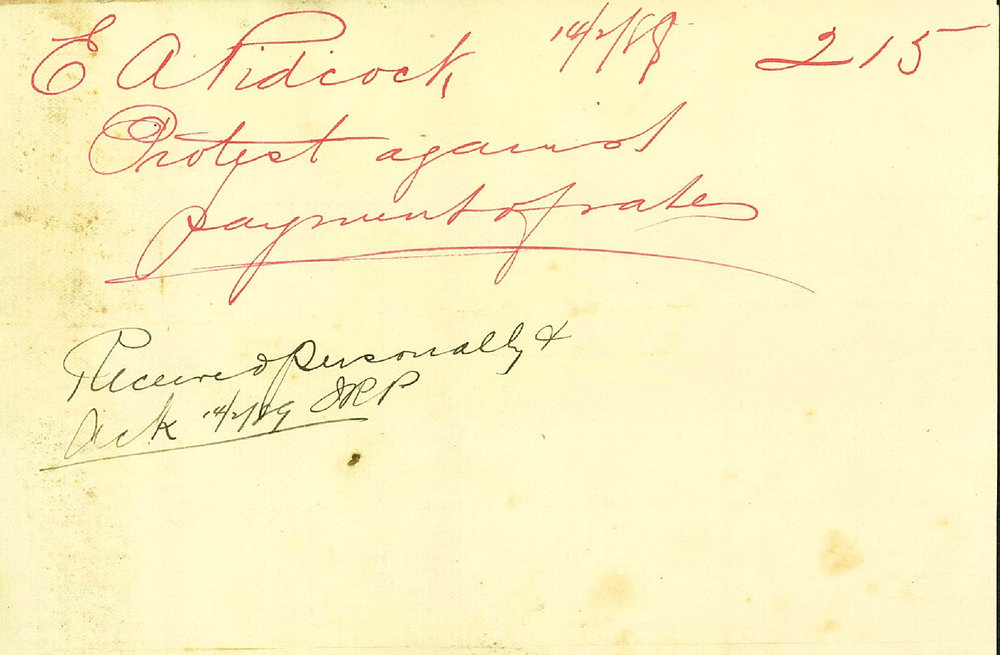 E A Pidcock, 14/2/89 215
Protest against
payment of rates
Received personally &
Ack 14/2/89